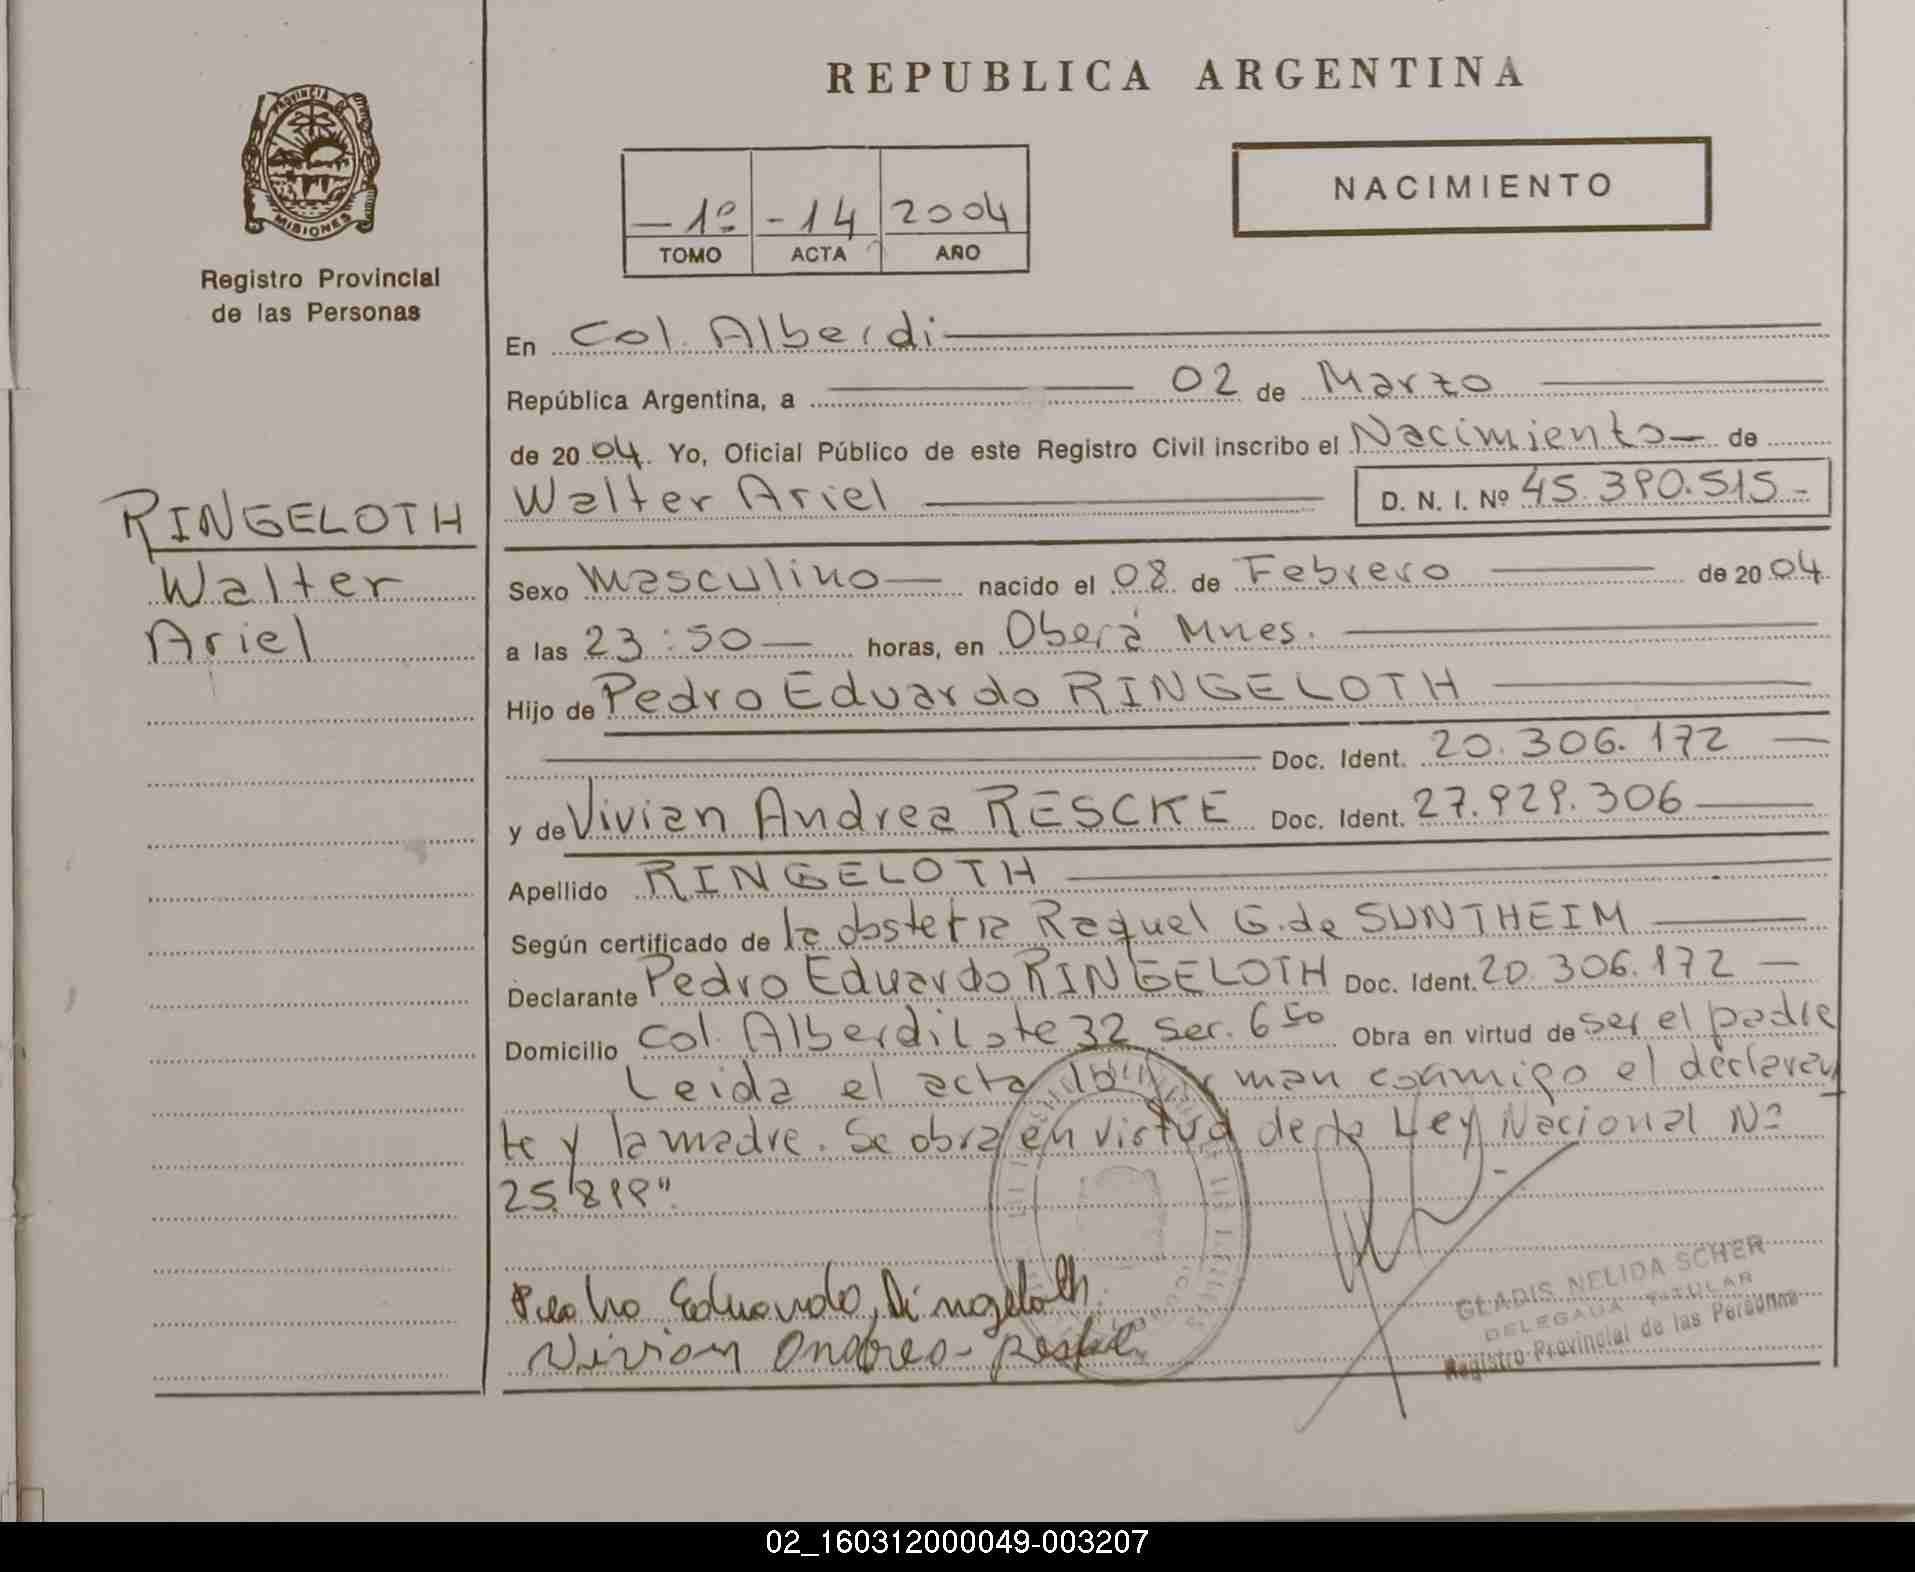 REPUBLICA ARGENTINA
PROVINCIA DE
MISIONES
Registro Provincial
de las Personas
— 1º - 14 2004
TOMO ACTA AÑO
NACIMIENTO
En Col. Alberdi
República Argentina, a 02 de Marzo
de 2004. Yo, Oficial Público de este Registro Civil inscribo el Nacimiento — de
Walter Ariel D. N. I. Nº 45.390.515.-
RINGELOTH
Walter
Ariel
Sexo Masculino — nacido el 08 de Febrero — de 2004.
a las 23:50 — horas, en Oberá Mnes.
Hijo de Pedro Eduardo RINGELOTH
Doc. Ident. 20.306.172 —
y de Vivian Andrea RESCKE Doc. Ident. 27.929.306
Apellido RINGELOTH
Según certificado de la obstetra Raquel G. de SUNTHEIM
Declarante Pedro Eduardo RINGELOTH Doc. Ident. 20.306.172 —
Domicilio Col. Alberdi Lote 32 Sec. 6 Obra en virtud de ser el padre
Leida el acta la man conmigo el declaran
te y la madre. Se obra en virtud de la Ley Nacional Nº
25.819".
Pedro Eduardo Ringeloth
Vivian Andrea Reske
GLADIS NELIDA SCHER
DELEGADA TITULAR
Registro Provincial de las Personas
02_160312000049-003207